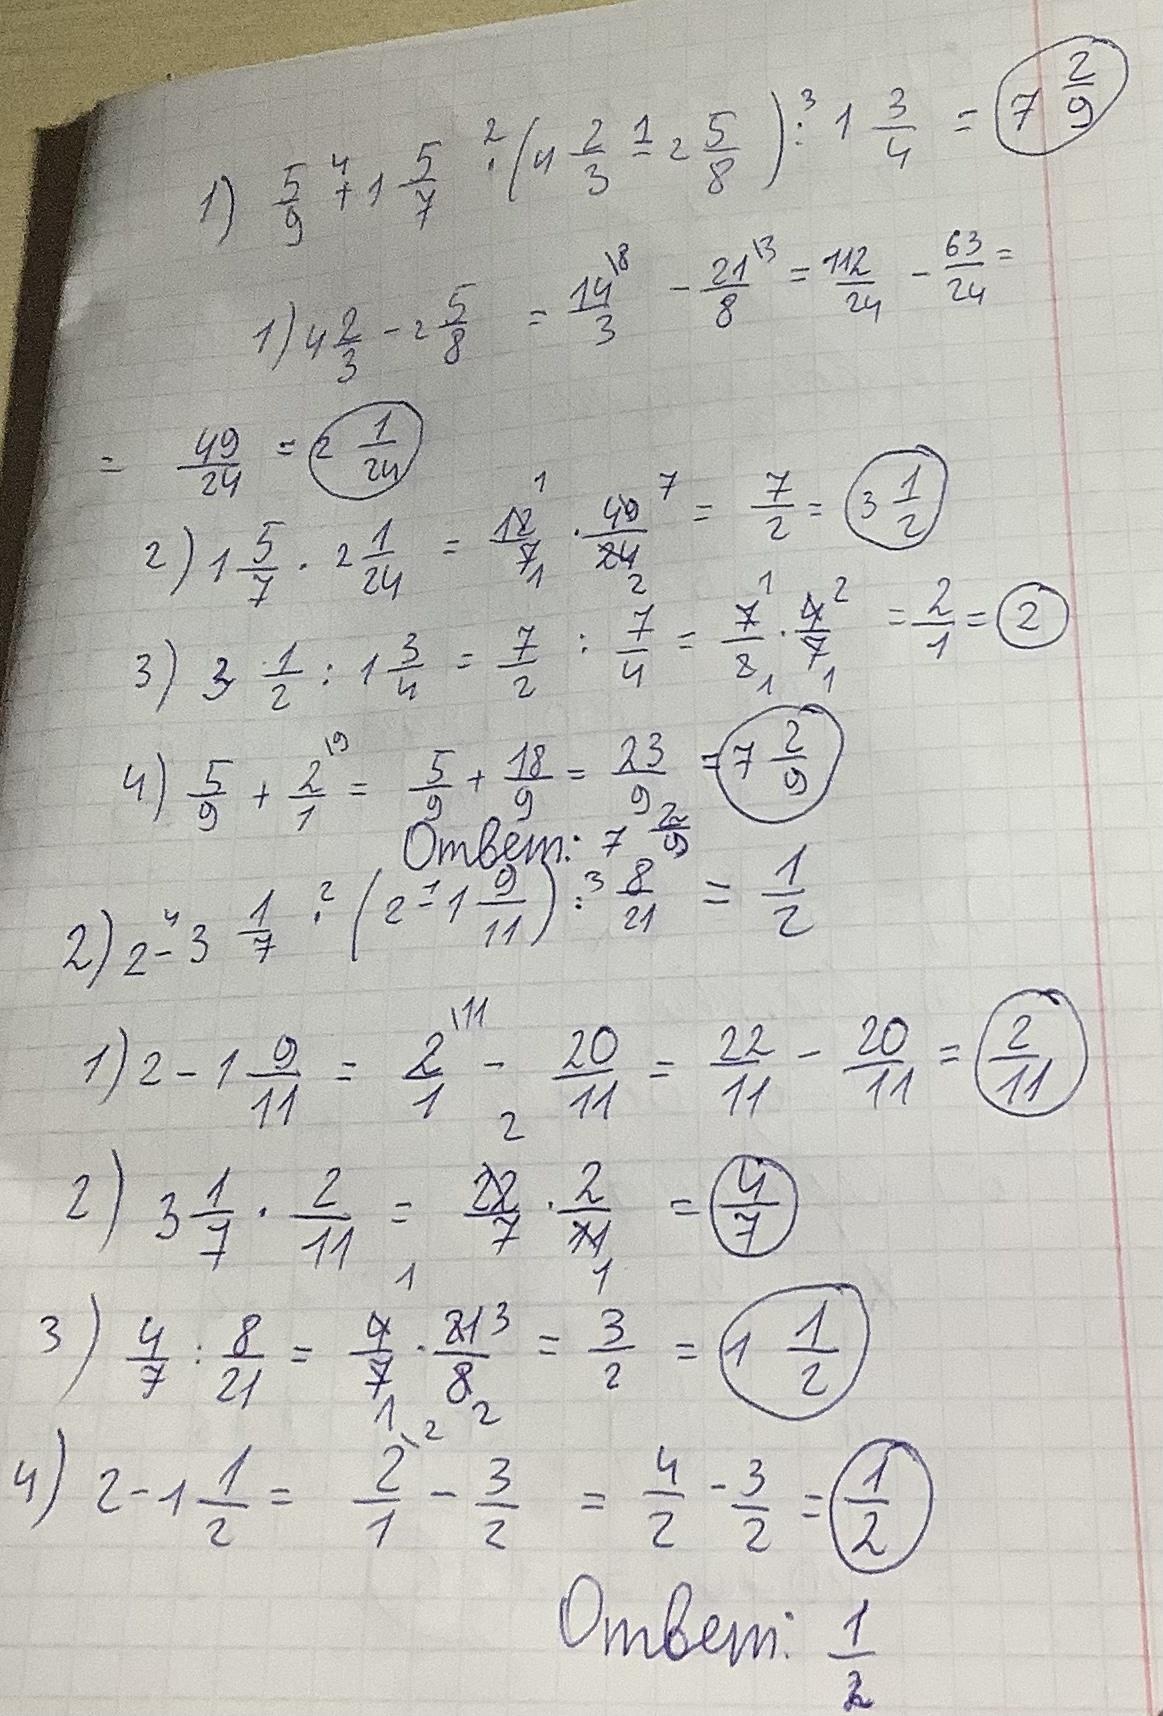 1) 5/9 + 1 5/7 · (4 2/3 - 2 5/8) : 1 3/4 = 7 2/9
1) 4 2/3 - 2 5/8 = 14/3 \8 - 21/8 \3 = 112/24 - 63/24 =
= 49/24 = 2 1/24
2) 1 5/7 · 2 1/24 = 12/7 · 49/24 = 7/2 = 3 1/2
3) 3 1/2 : 1 3/4 = 7/2 : 7/4 = 7/2 · 4/7 = 2/1 = 2
4) 5/9 + 2/1 \9 = 5/9 + 18/9 = 23/9 = 7 2/9
Ответ: 7 2/9
2) 2 - 3 1/7 · (2 - 1 9/11) : 8/21 = 1/2
1) 2 - 1 9/11 = 2/1 \11 - 20/11 = 22/11 - 20/11 = 2/11
2) 3 1/7 · 2/11 = 22/7 · 2/11 = 4/7
3) 4/7 : 8/21 = 4/7 · 21/8 = 3/2 = 1 1/2
4) 2 - 1 1/2 = 2/1 \2 - 3/2 = 4/2 - 3/2 = 1/2
Ответ: 1/2